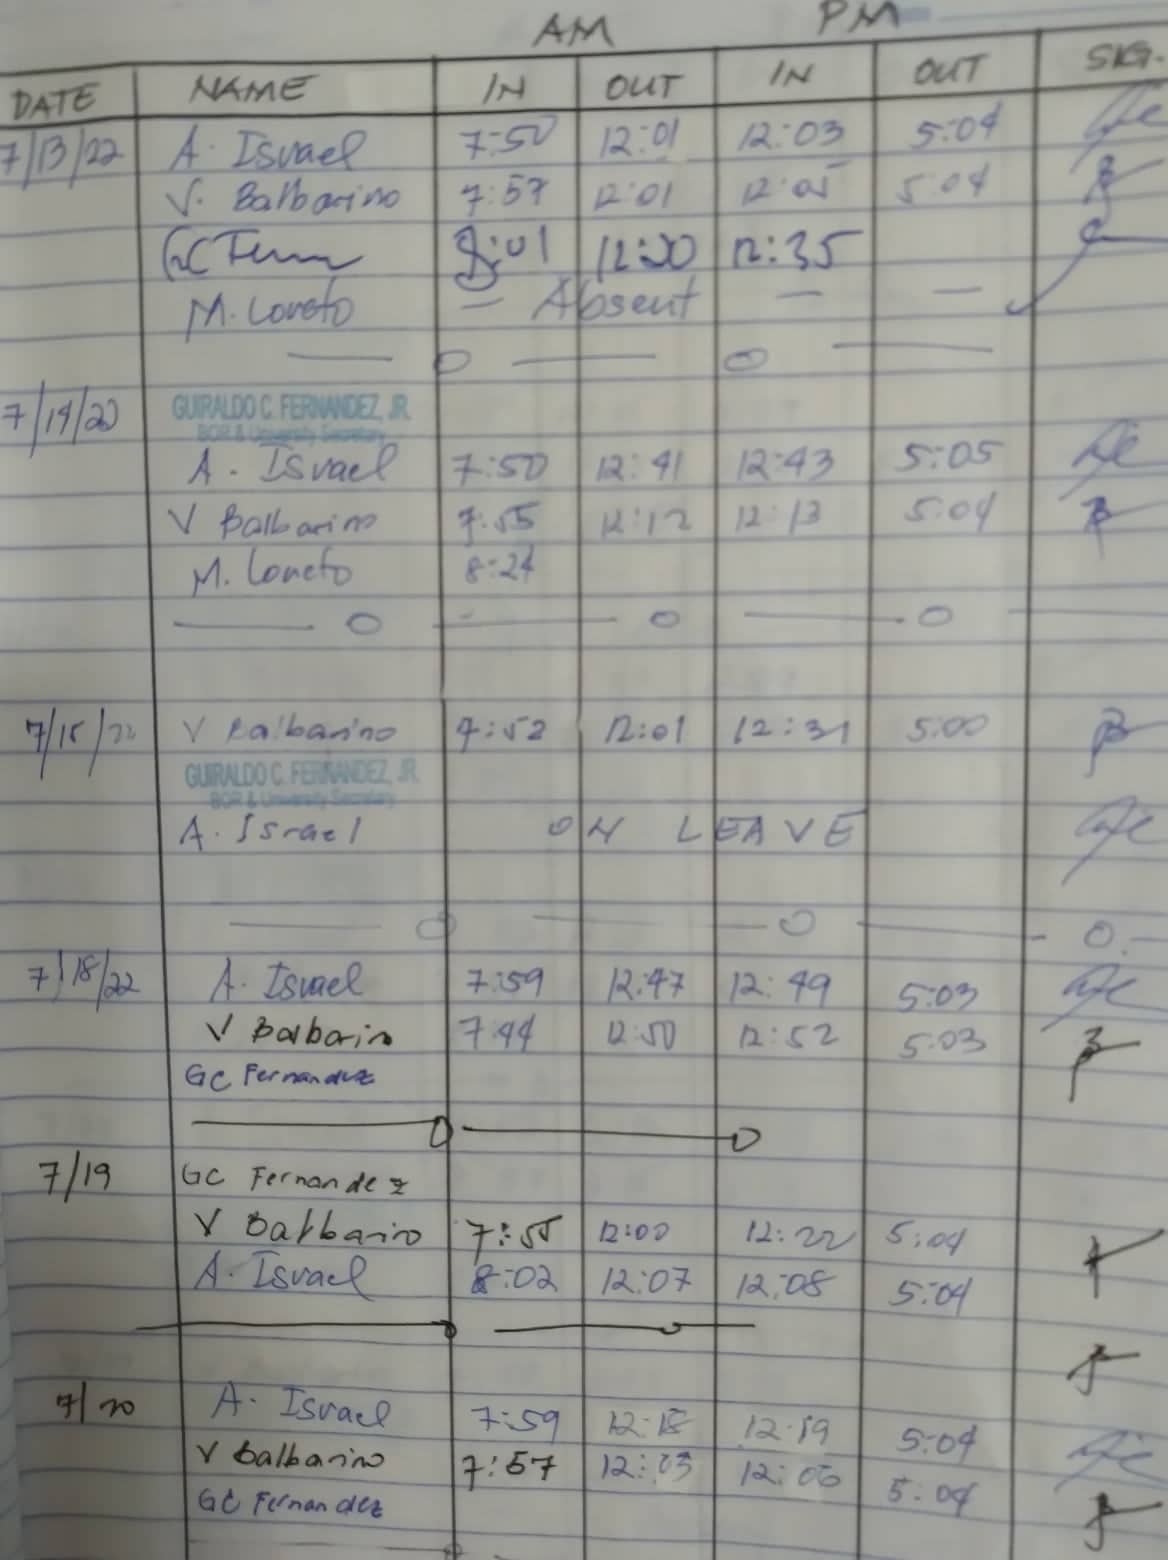 AM PM
DATE NAME IN OUT IN OUT SIG.
7/13/22 A. Israel 7:50 12:01 12:03 5:04
V. Balbarino 7:57 12:01 12:05 5:04
GC 8:01 12:20 12:35
M. Loreto — Absent — —
7/14/22 GUIRALDO C. FERNANDEZ, JR.
BOR & University Secretary
A. Israel 7:50 12:41 12:43 5:05
V Balbarino 7:55 12:12 12:13 5:04
M. Loreto 8:24
7/15/22 V Balbarino 7:52 12:01 12:31 5:00
GUIRALDO C. FERNANDEZ, JR.
BOR & University Secretary
A. Israel ON LEAVE
7/18/22 A. Israel 7:59 12:47 12:49 5:03
V Balbarin 7:44 12:50 12:52 5:03
GC Fernandez
7/19 GC Fernandez
V Balbarino 7:55 12:00 12:22 5:04
A. Israel 8:02 12:07 12:08 5:04
7/20 A. Israel 7:59 12:18 12:19 5:04
V Balbarino 7:57 12:03 12:06 5:04
GC Fernandez